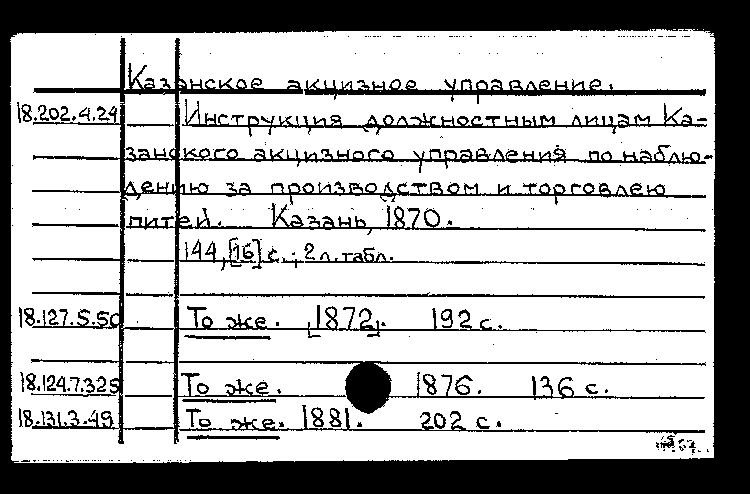 Казанское акцизное управление.
18.202.4.24 Инструкция должностным лицам Ка-
занского акцизного управления по наблю-
дению за производством и торговлею
питей. Казань, 1870.
144, [16] с.; 2 л. табл.
18.127.5.50 То же. [1872]. 192 с.
18.124.7.325 То же. 1876. 136 с.
18.131.3.49 То же. 1881. 202 с.